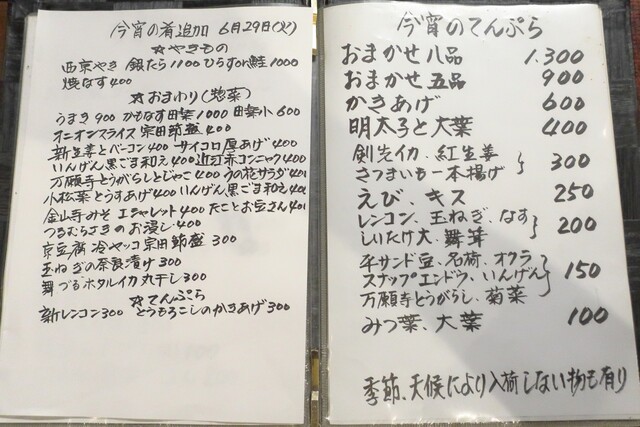 今宵の肴追加 6月29日(火)
☆やきもの
西京やき 銀だら1100 ひらすor鮭1000
焼なす400
☆おまわり(惣菜)
うまき900 かもなす田楽1000 田楽小600
オニオンスライス 宗田節盛400
新生姜とベーコン400 サイコロ厚あげ400
いんげん黒ごま和え400 近江赤コンニャク400
万願寺とうがらしとじゃこ400 うの花サラダ401
小松菜とうすあげ400 いんげん黒ごま和え401
金山寺みそ エシャレット400 たことお豆さん401
つるむらさきのお浸し400
京豆腐 冷ヤッコ宗田節盛300
玉ねぎの奈良漬け300
舞づるホタルイカ丸干し300
☆てんぷら
新レンコン300 とうもろこしのかきあげ300
今宵のてんぷら
おまかせ八品 1.300
おまかせ五品 900
かきあげ 600
明太子と大葉 400
剣先イカ、紅生姜
さつまいも一本揚げ 300
えび、キス 250
レンコン、玉ねぎ、なす
しいたけ大、舞茸 200
平サンド豆、茗荷、オクラ
スナップエンドウ、いんげん 150
万願寺とうがらし、菊菜
みつ葉、大葉 100
季節、天候により入荷しない物も有り